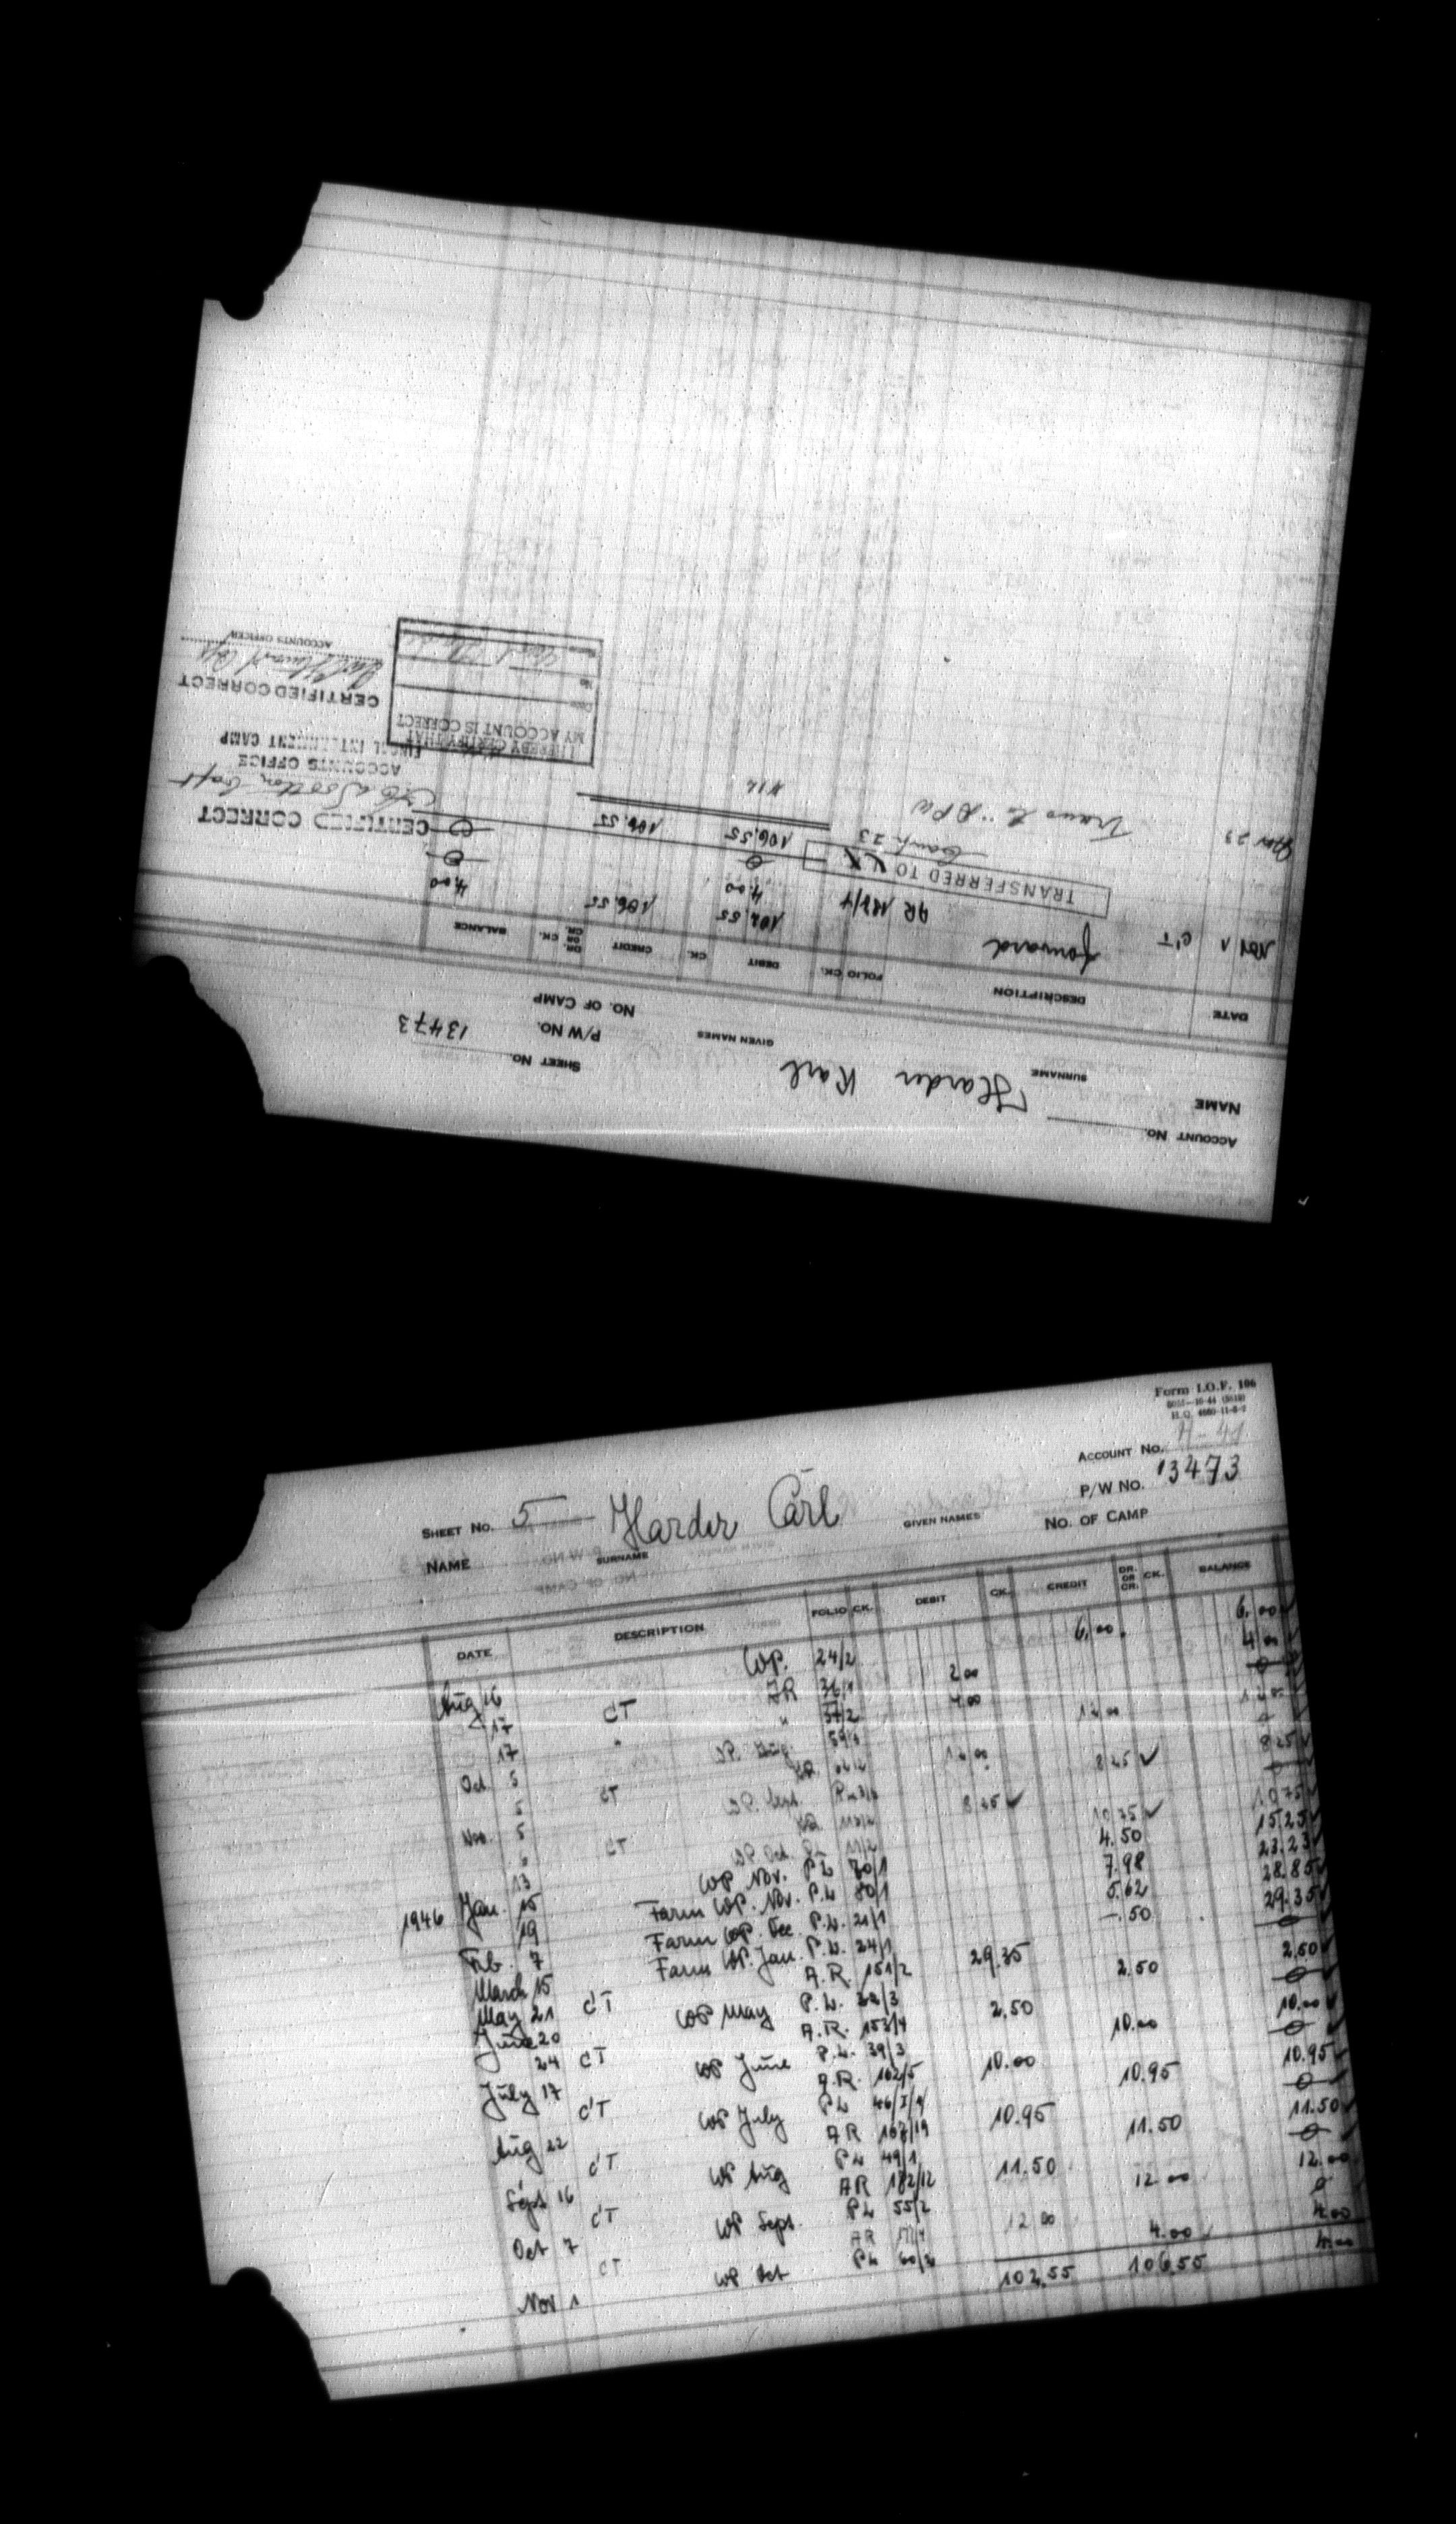 ACCOUNT No.
NAME Harder Karl
SURNAME GIVEN NAMES
SHEET No.
P/W No. 13473
NO. OF CAMP
DATE DESCRIPTION FOLIO CK. DEBIT CK. CREDIT DR. OR CR. CK. BALANCE
Nov 1 CT forward 102.55 106.55 4.00
AR 4.00 0
TRANSFERRED TO
106.55 106.55 0
Nov 23 Trans to DPW Camp 23
CERTIFIED CORRECT
ACCOUNTS OFFICE
INTERNMENT CAMP
I HEREBY CERTIFY THAT
MY ACCOUNT IS CORRECT
Date
No.
Name
CERTIFIED CORRECT
ACCOUNTS OFFICER
Form I.O.F. 106
ACCOUNT No. H-41
SHEET No. 5 P/W No. 13473
NAME Harder Carl NO. OF CAMP
SURNAME GIVEN NAMES
DATE DESCRIPTION FOLIO CK. DEBIT CK. CREDIT DR. OR CR. CK. BALANCE
Aug 16 WP. 24/2 6.00 6.00
17 CT AR 36/1 2 00 4 00
17 " " 37/2 4 00 0
Oct 5 WP. Aug. 12 00 12 00
5 CT AR 12 00 0
Nov. 5 WP. Sept. 8 25 8 25
6 CT AR 8 25 0
13 WP. Oct. 10 75 10 75
1946 Jan. 15 WP Nov. P.L. 70/1 4.50 15.25
19 Farm WP. Nov. P.L. 80/1 7.98 23.23
Feb. 7 Farm WP. Dec. P.L. 21/1 5.62 28.85
March 15 Farm WP. Jan. P.L. 24/1 -.50 29.35
May 21 CT A.R. 151/2 29.35 0
June 20 WP May P.L. 32/3 2.50 2.50
24 CT A.R. 153/4 2.50 0
July 17 WP June P.L. 39/3 10.00 10.00
CT A.R. 162/5 10.00 0
Aug 22 WP July PL 10.95 10.95
CT AR 10.95 0
Sept 16 WP Aug PL 49/1 11.50 11.50
CT AR 182/12 11.50 0
Oct 7 WP Sept. PL 55/2 12 00 12.00
CT AR 12 00 0
Nov 1 WP Oct PL 4.00 4.00
102.55 106.55 4.00